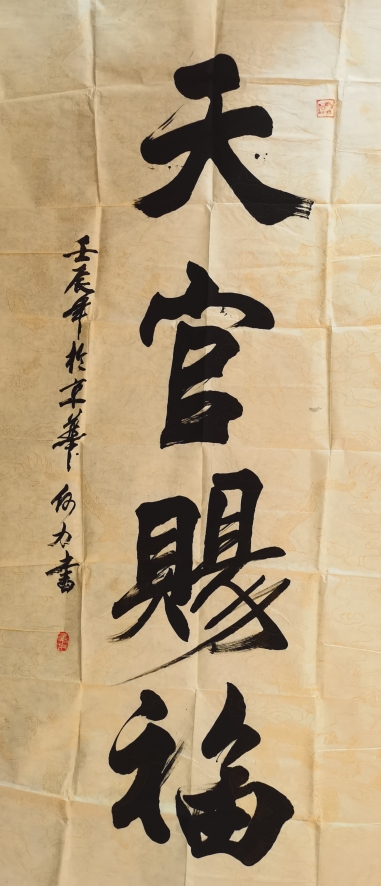 天官賜福
壬辰年於京華何力書